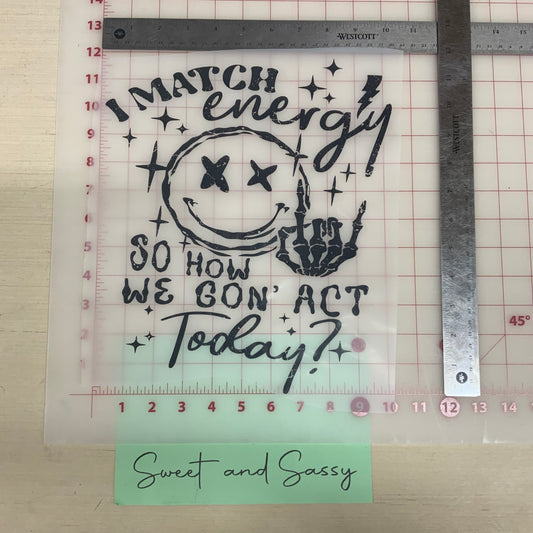 WESTCOTT
WESTCOTT
I MATCH
energy
SO HOW
WE GON' ACT
Today?
14
13
12
11
10
9
8
7
6
5
4
3
2
1
45°
1 2 3 4 5 6 7 8 9 10 11 12 13 14
Sweet and Sassy